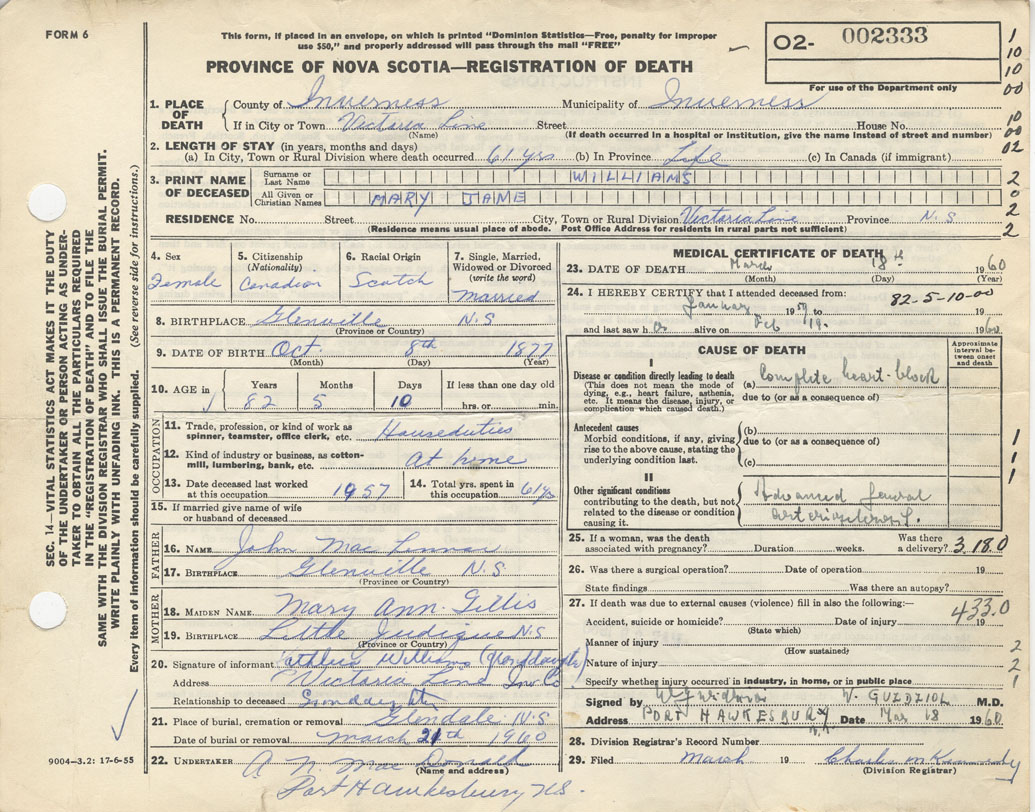 FORM 6
This form, if placed in an envelope, on which is printed "Dominion Statistics—Free, penalty for improper
use $50," and properly addressed will pass through the mail "FREE"
PROVINCE OF NOVA SCOTIA—REGISTRATION OF DEATH
02- 002333
For use of the Department only
1
10
10
00
10
00
02
2
0
2
2
1. PLACE OF DEATH { County of Inverness Municipality of Inverness
If in City or Town Victoria Line Street House No.
(Name) (If death occurred in a hospital or institution, give the name instead of street and number)
2. LENGTH OF STAY (in years, months and days)
(a) In City, Town or Rural Division where death occurred 61 yrs (b) In Province Life (c) In Canada (if immigrant)
3. PRINT NAME OF DECEASED Surname or Last Name WILLIAMS
All Given or Christian Names MARY JANE
RESIDENCE No. Street City, Town or Rural Division Victoria Line Province N.S
(Residence means usual place of abode. Post Office Address for residents in rural parts not sufficient)
4. Sex Female
5. Citizenship (Nationality) Canadian
6. Racial Origin Scotch
7. Single, Married, Widowed or Divorced (write the word) Married
8. BIRTHPLACE Glenville N.S
(Province or Country)
9. DATE OF BIRTH Oct. 8th 1877
(Month) (Day) (Year)
10. AGE in Years Months Days If less than one day old
82 5 10 hrs. or min.
OCCUPATION
11. Trade, profession, or kind of work as spinner, teamster, office clerk, etc. Houseduties
12. Kind of industry or business, as cotton-mill, lumbering, bank, etc. At home
13. Date deceased last worked at this occupation 1957
14. Total yrs. spent in this occupation 61 ys
15. If married give name of wife or husband of deceased
FATHER
16. NAME John Mac Lennan
17. BIRTHPLACE Glenville N.S
(Province or Country)
MOTHER
18. MAIDEN NAME Mary Ann Gillis
19. BIRTHPLACE Little Judique N.S
(Province or Country)
20. Signature of informant Williams
Address Victoria Line Inv Co
Relationship to deceased
21. Place of burial, cremation or removal Glendale N.S
Date of burial or removal March 21th 1960
22. UNDERTAKER A N. Mac Donald
(Name and address)
Port Hawkesbury N.S.
MEDICAL CERTIFICATE OF DEATH
23. DATE OF DEATH March 18th 1960
(Month) (Day) (Year)
24. I HEREBY CERTIFY that I attended deceased from: 82-5-10-00
January 19 to 19
and last saw h alive on Feb 19. 1960
CAUSE OF DEATH
Approximate interval between onset and death
I
Disease or condition directly leading to death (a) Complete heart-block
(This does not mean the mode of dying, e.g., heart failure, asthenia, etc. It means the disease, injury, or complication which caused death.)
due to (or as a consequence of)
Antecedent causes (b)
Morbid conditions, if any, giving rise to the above cause, stating the underlying condition last.
due to (or as a consequence of)
(c)
1
1
1
II
Other significant conditions contributing to the death, but not related to the disease or condition causing it.
Advanced general
25. If a woman, was the death associated with pregnancy? Duration weeks. Was there a delivery? 3.18.0
26. Was there a surgical operation? Date of operation 19
State findings Was there an autopsy?
27. If death was due to external causes (violence) fill in also the following:—
433.0
Accident, suicide or homicide? Date of injury 19
(State which)
Manner of injury
(How sustained)
Nature of injury
Specify whether injury occurred in industry, in home, or in public place
2
2
1
Signed by V. GUZDZIOL M.D.
Address PORT HAWKESBURY Date Mar 18 1960
28. Division Registrar's Record Number
29. Filed March 19
(Division Registrar)
SEC. 14—VITAL STATISTICS ACT MAKES IT THE DUTY
OF THE UNDERTAKER OR PERSON ACTING AS UNDER-
TAKER TO OBTAIN ALL THE PARTICULARS REQUIRED
IN THE "REGISTRATION OF DEATH" AND TO FILE THE
SAME WITH THE DIVISION REGISTRAR WHO SHALL ISSUE THE BURIAL PERMIT.
WRITE PLAINLY WITH UNFADING INK. THIS IS A PERMANENT RECORD.
Every item of information should be carefully supplied. (See reverse side for instructions.)
9004—3.2: 17-6-55